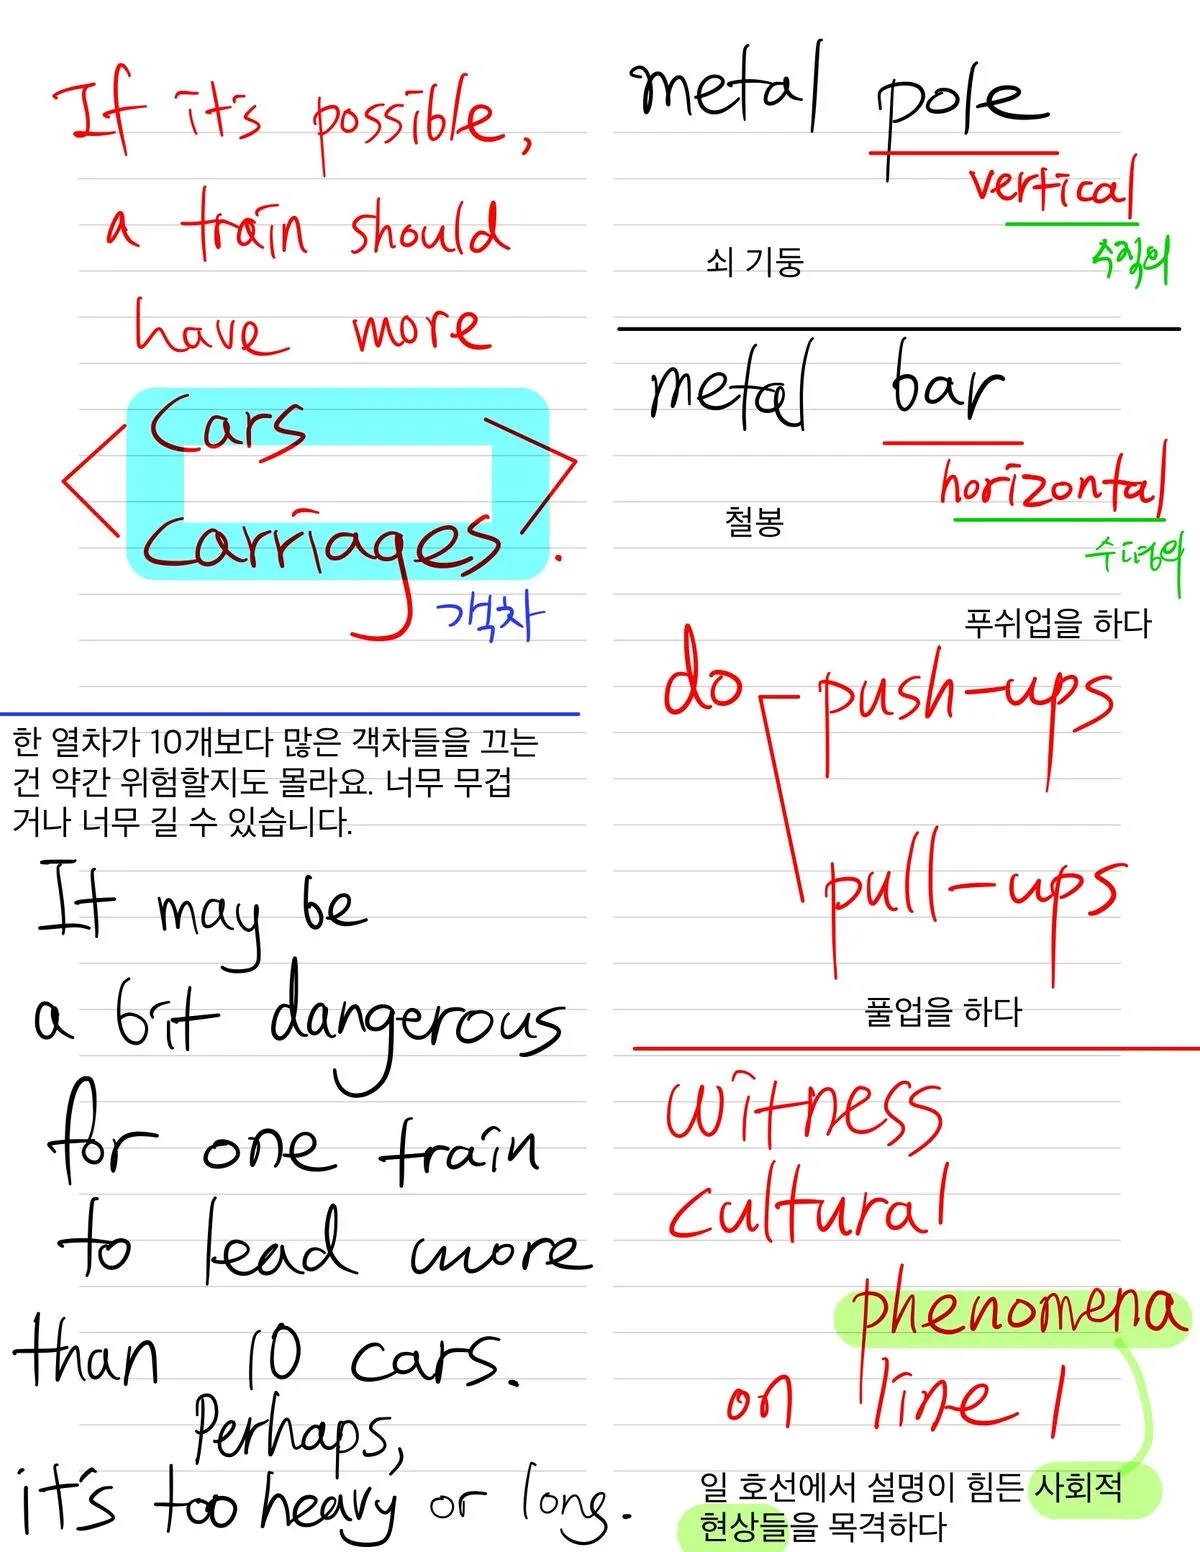 If it's possible,
a train should
have more
cars
carriages.
객차
한 열차가 10개보다 많은 객차들을 끄는
건 약간 위험할지도 몰라요. 너무 무겁
거나 너무 길 수 있습니다.
It may be
a bit dangerous
for one train
to lead more
than 10 cars.
Perhaps,
it's too heavy or long.
metal pole
vertical
쇠 기둥
수직의
metal bar
horizontal
철봉
수평의
푸쉬업을 하다
do push-ups
pull-ups
풀업을 하다
witness
cultural
phenomena
on line 1
일 호선에서 설명이 힘든 사회적
현상들을 목격하다